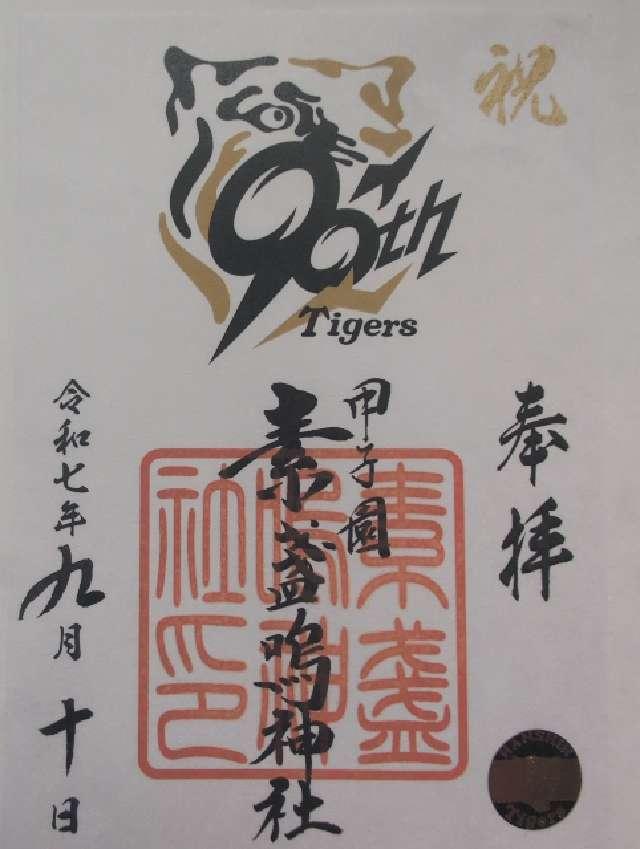 祝
90th
Tigers
奉拝
甲子園
素盞嗚神社
素盞
嗚神
社印
令和七年九月十日
HANSHIN
Tigers